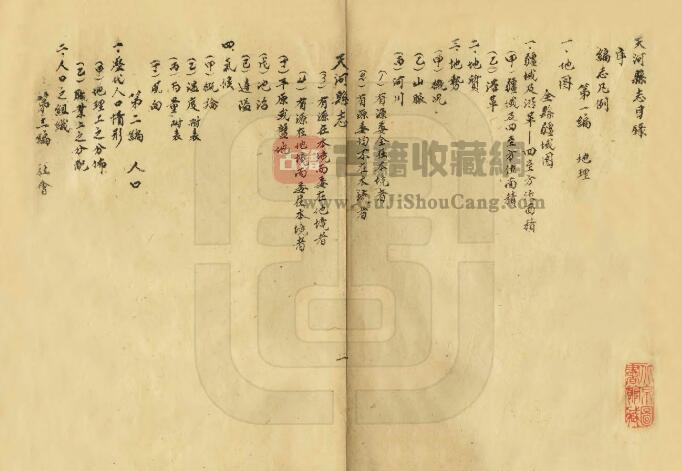 天河縣志目錄
序
編志凡例
第一編 地理
一、地圖
全縣疆域圖
一、疆域及沿革—四至方位面積
(甲)疆域及四至方位面積
(乙)沿革
二、地質
三、地勢
(甲)概况
(乙)山脈
(丙)河川
(1)有源委全在本境者
(2)有源委均不在本境者
天河縣志
一
(3)有源在本境而委在他境者
(4)有源在他境而委在本境者
(丁)平原或盤地
(戊)地治
(己)邊隘
四、氣候
(甲)概論
(乙)溫度附表
(丙)雨量附表
(丁)風向
第二編 人口
一、歷代人口情形
(甲)地理上之分佈
(乙)職業上之分配
二、人口之組織
第三編 社會
北京圖書館藏
古籍
古籍收藏网
www.GuJiShouCang.com